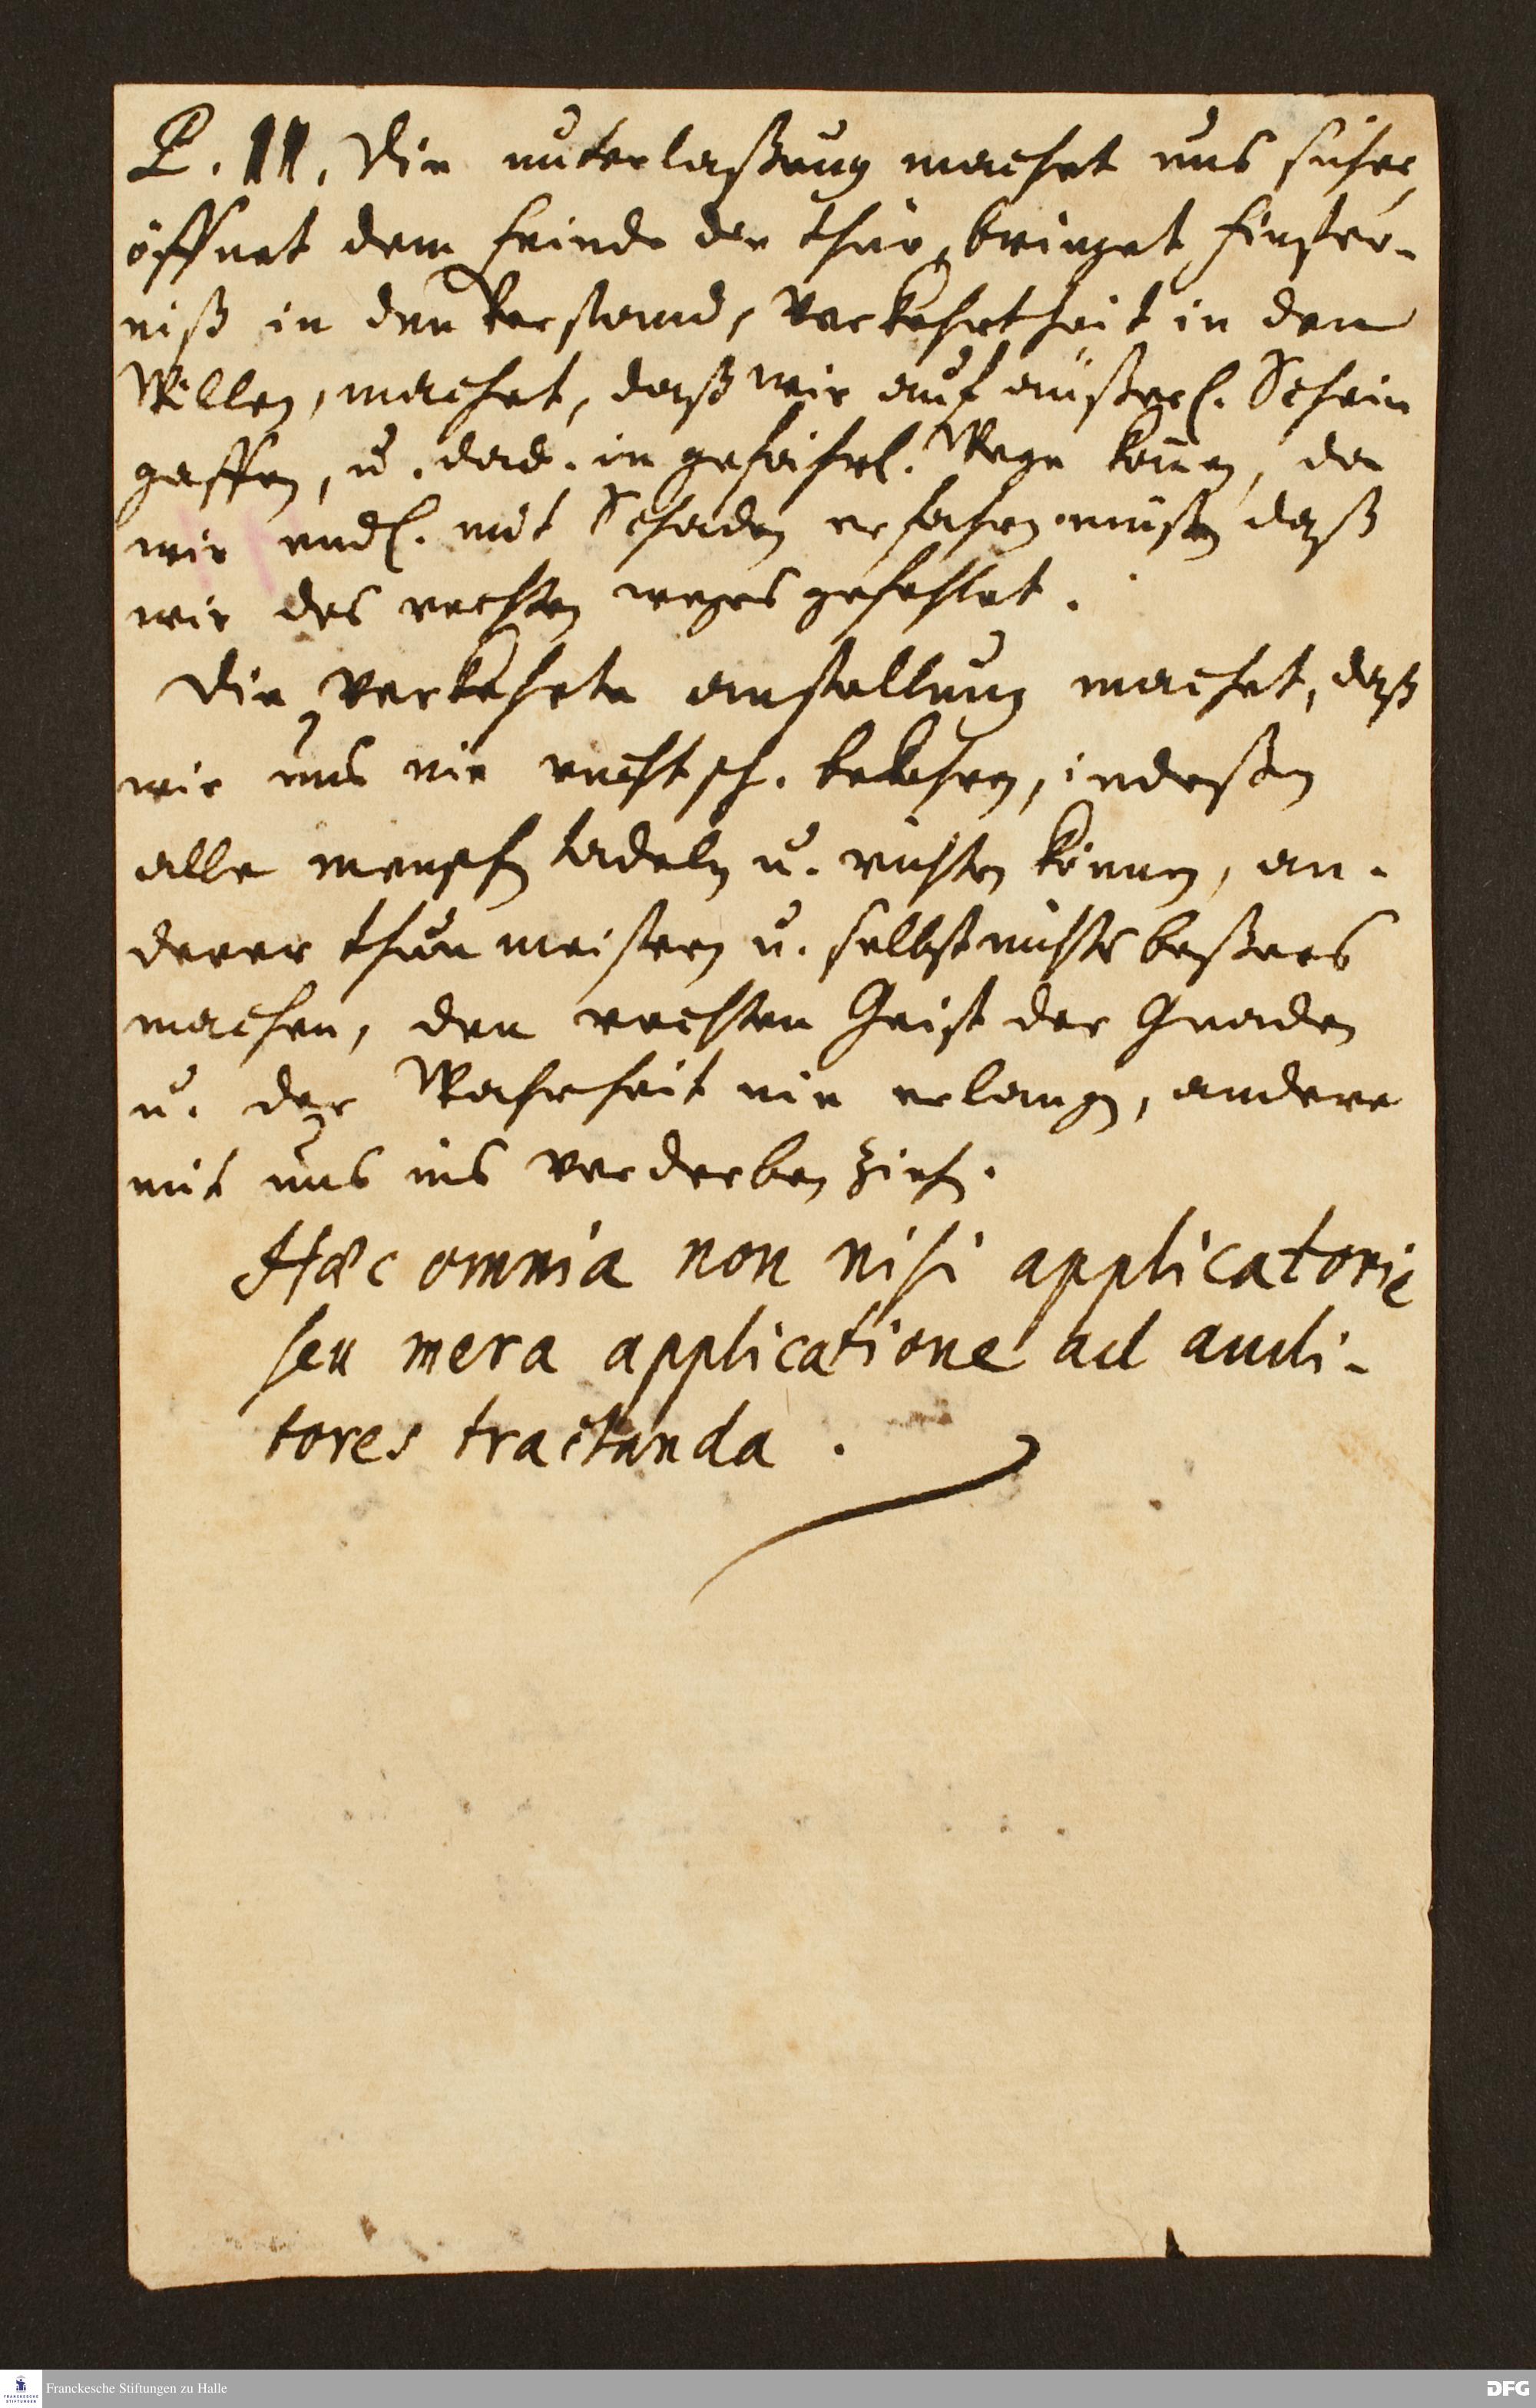 P. II. Die unterlaßung machet uns sicher,
öffnet dem Feinde die thür, bringet Finster-
niß in den Verstand, Verkehrtheit in den
Willen, machet, daß wir auf äußerl. Schein
gaffen, u. dad. in gefährl. Wege kom̄en, da
wir endl. mit Schaden erfahren müßen daß
wir des rechten weges gefehlet.
Die verkehrte anstellung machet, daß
wir uns nie rechtsch. bekehren, indeßen
alle menschen tadeln u. richten können, an-
derer thun meistern u. selbst nichts beßers
machen, den rechten Geist der Gnaden
u. der Wahrheit nie erlangen, andere
mit uns ins verderben ziehen.
Hæc omnia non nisi applicatorie
seu mera applicatione ad audi-
tores tractanda.
Franckesche Stiftungen zu Halle
FRANCKESCHE
STIFTUNGEN
DFG